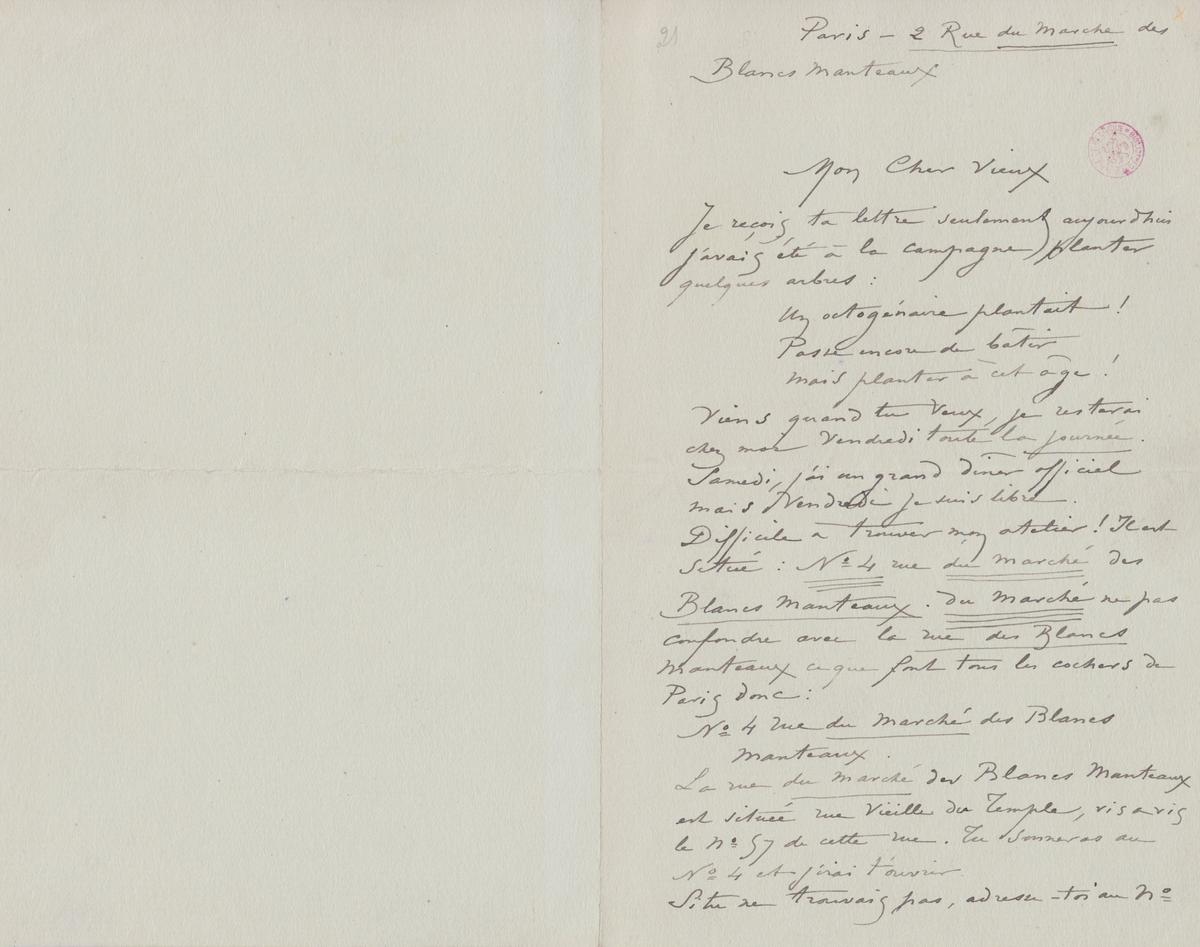 21
Paris – 2 Rue du Marche des
Blancs Manteaux
Mon Cher Vieux
Je reçois ta lettre seulement aujourdhui
j'avais été à la campagne planter
quelques arbres :
Un octogénaire plantait !
Passe encore de bâtir
mais planter à cet âge !
Viens quand tu veux, je resterai
chez moi Vendredi toute la journée.
Samedi, j'ai un grand dîner officiel
mais Vendredi je suis libre.
Difficile a trouver mon atelier ! Il est
situé : No 4 rue du Marché des
Blancs Manteaux. du Marché ne pas
confondre avec la rue des Blancs
Manteaux ce que font tous les cochers de
Paris donc :
No 4 rue du Marché des Blancs
Manteaux.
La rue du Marché des Blancs Manteaux
est située rue Vieille du Temple, vis a vis
le No 57 de cette rue. Tu sonneras au
No 4 et j'irai t'ouvrir.
Si tu ne trouvais pas, adresse-toi au No